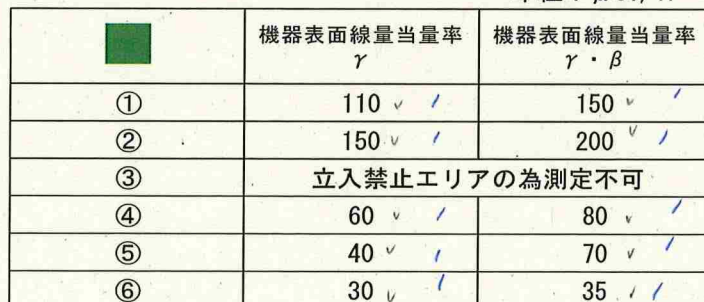 機器表面線量当量率 機器表面線量当量率
γ γ・β
① 110 150
② 150 200
③ 立入禁止エリアの為測定不可
④ 60 80
⑤ 40 70
⑥ 30 35